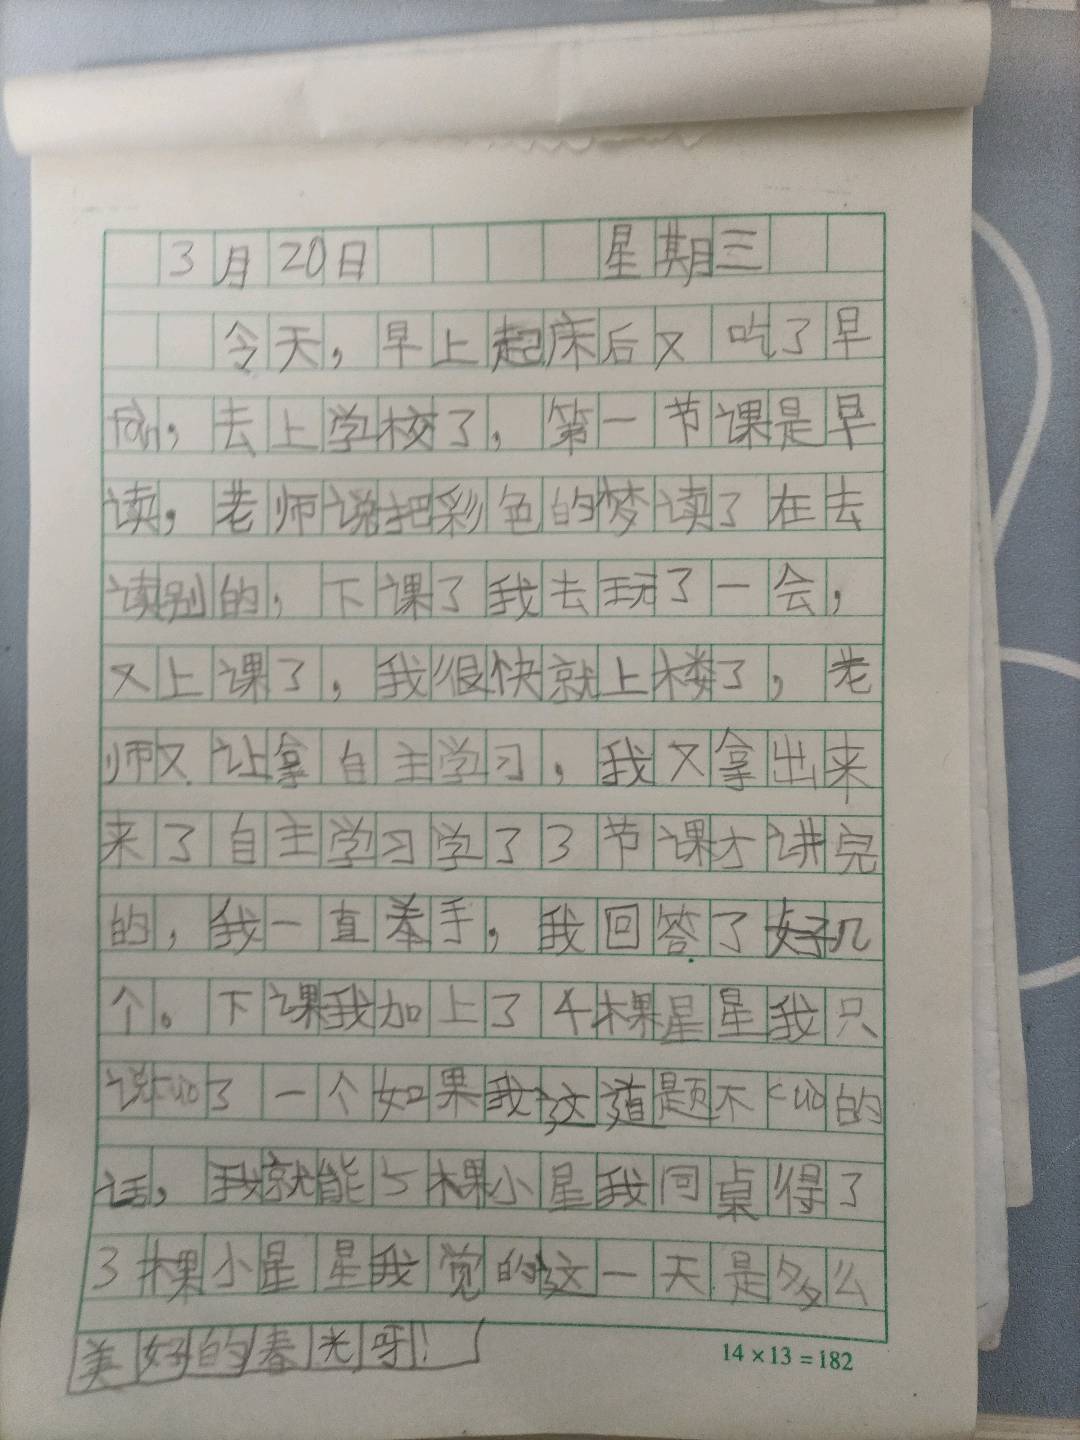 3月20日 星期三
今天，早上起床后又吃了早
fàn，去上学校了，第一节课是早
读，老师说把彩色的梦读了在去
读别的，下课了我去玩了一会，
又上课了，我很快就上楼了，老
师又让拿自主学习，我又拿出来
来了自主学习学了3节课才讲完
的，我一直举手，我回答了好几
个。下课我加上了4棵星星我只
说cuò了一个如果我这道题不cuò的
话，我就能5棵小星我同桌得了
3棵小星星我觉的这一天是多么
美好的春光呀！
14×13=182